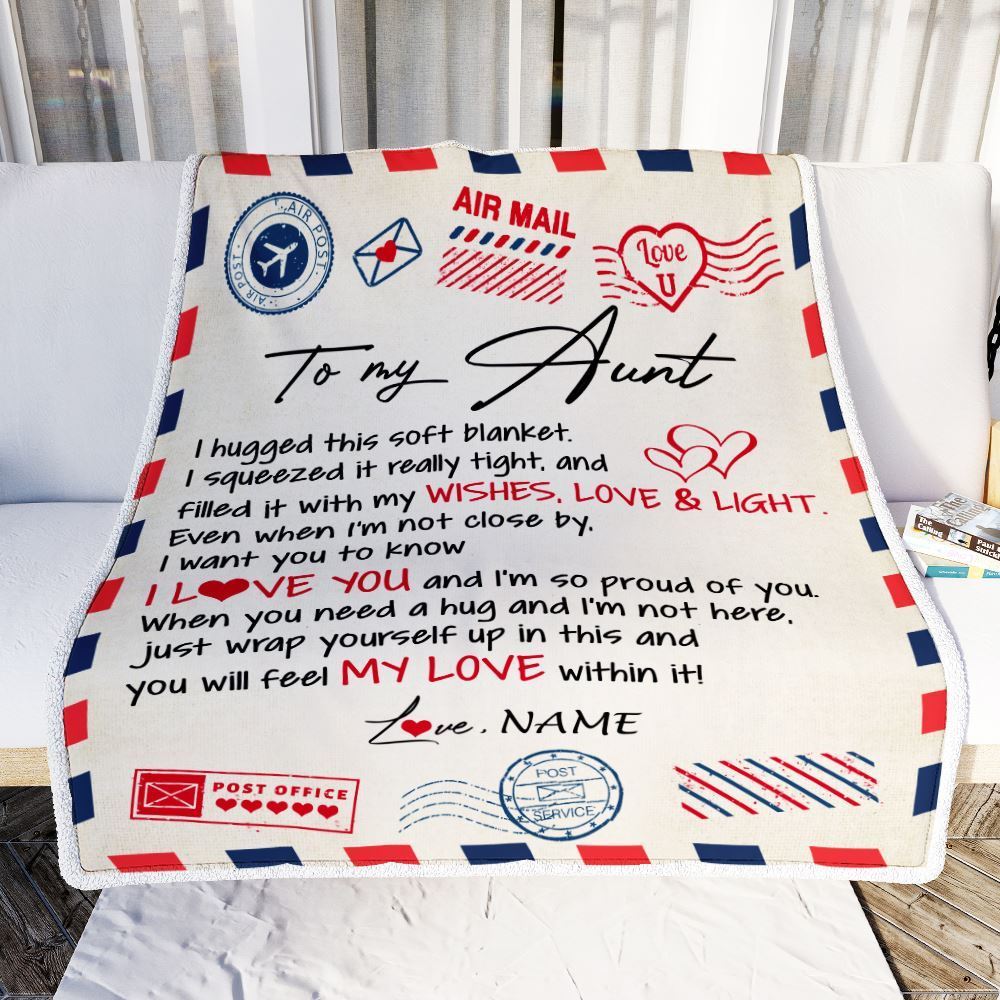 AIR POST
AIR POST
AIR MAIL
Love
U
To my Aunt
I hugged this soft blanket.
I squeezed it really tight, and
filled it with my WISHES, LOVE & LIGHT.
Even when I'm not close by,
I want you to know
I L❤VE YOU and I'm so proud of you.
When you need a hug and I'm not here,
just wrap yourself up in this and
you will feel MY LOVE within it!
L❤ve, NAME
POST OFFICE
POST
SERVICE
The
Calling
Paul